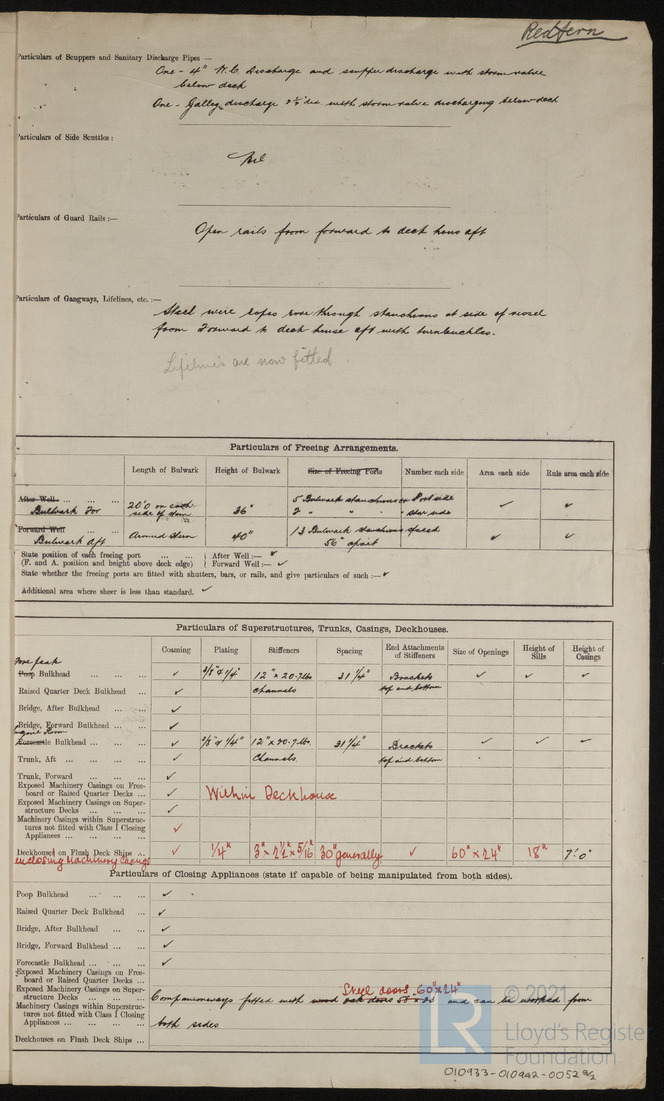 Redfern
Particulars of Scuppers and Sanitary Discharge Pipes —
One - 4" W.C. Discharge and scupper discharge with storm valve
below deck
One - Galley discharge 2½" dia with storm valve discharging below deck
Particulars of Side Scuttles :
Nil
Particulars of Guard Rails :—
Open rails from forward to deck house aft
Particulars of Gangways, Lifelines, etc. :—
Steel wire ropes rove through stanchions at side of vessel
from Forward to deck house aft with turnbuckles.
Lifelines are now fitted.
Particulars of Freeing Arrangements.
Length of Bulwark Height of Bulwark Size of Freeing Ports Number each side Area each side Rule area each side
After Well ... ... ... 5 Bulwark stanchions on Port side
Bulwark For 20'0 on each side of stem 36" 7 " " " Star side
Forward Well 13 Bulwark stanchions spaced
Bulwark aft Around stern 40" 56" apart
State position of each freeing port ... ... After Well :—
(F. and A. position and height above deck edge) Forward Well :—
State whether the freeing ports are fitted with shutters, bars, or rails, and give particulars of such :—
Additional area where sheer is less than standard.
Particulars of Superstructures, Trunks, Casings, Deckhouses.
Coaming Plating Stiffeners Spacing End Attachments of Stiffeners Size of Openings Height of Sills Height of Casings
Fore peak
Poop Bulkhead ... ... ... 3/8" & 1/4" 12" x 20.7 lbs 31 1/4" Brackets
Raised Quarter Deck Bulkhead ... Channels top and bottom
Bridge, After Bulkhead ... ...
Bridge, Forward Bulkhead ... ...
Engine Room
Forecastle Bulkhead ... ... ... 3/8" & 1/4" 12" x 20.7 lb. 31 1/4" Brackets
Trunk, Aft ... ... ... Channels. top and bottom
Trunk, Forward ... ... ...
Exposed Machinery Casings on Free-
board or Raised Quarter Decks ... Within Deckhouse
Exposed Machinery Casings on Super-
structure Decks ... ... ...
Machinery Casings within Superstruc-
tures not fitted with Class I Closing
Appliances ... ... ... ...
Deckhouses on Flush Deck Ships ... 1/4" 3" x 2 1/2" x 5/16 30" generally 60" x 24" 18" 7'.0"
enclosing Machinery Casings
Particulars of Closing Appliances (state if capable of being manipulated from both sides).
Poop Bulkhead ... ... ...
Raised Quarter Deck Bulkhead ...
Bridge, After Bulkhead ... ...
Bridge, Forward Bulkhead ... ...
Forecastle Bulkhead ... ... ...
Exposed Machinery Casings on Free-
board or Raised Quarter Decks ...
Steel doors 60" x 24"
Exposed Machinery Casings on Super-
structure Decks ... ... ... Companionways fitted with wood oak doors and can be worked from
Machinery Casings within Superstruc-
tures not fitted with Class I Closing
Appliances ... ... ... ... both sides
Deckhouses on Flush Deck Ships ...
© 2021
LR
Lloyd's Register
Foundation
010933-010942-0052 2/2